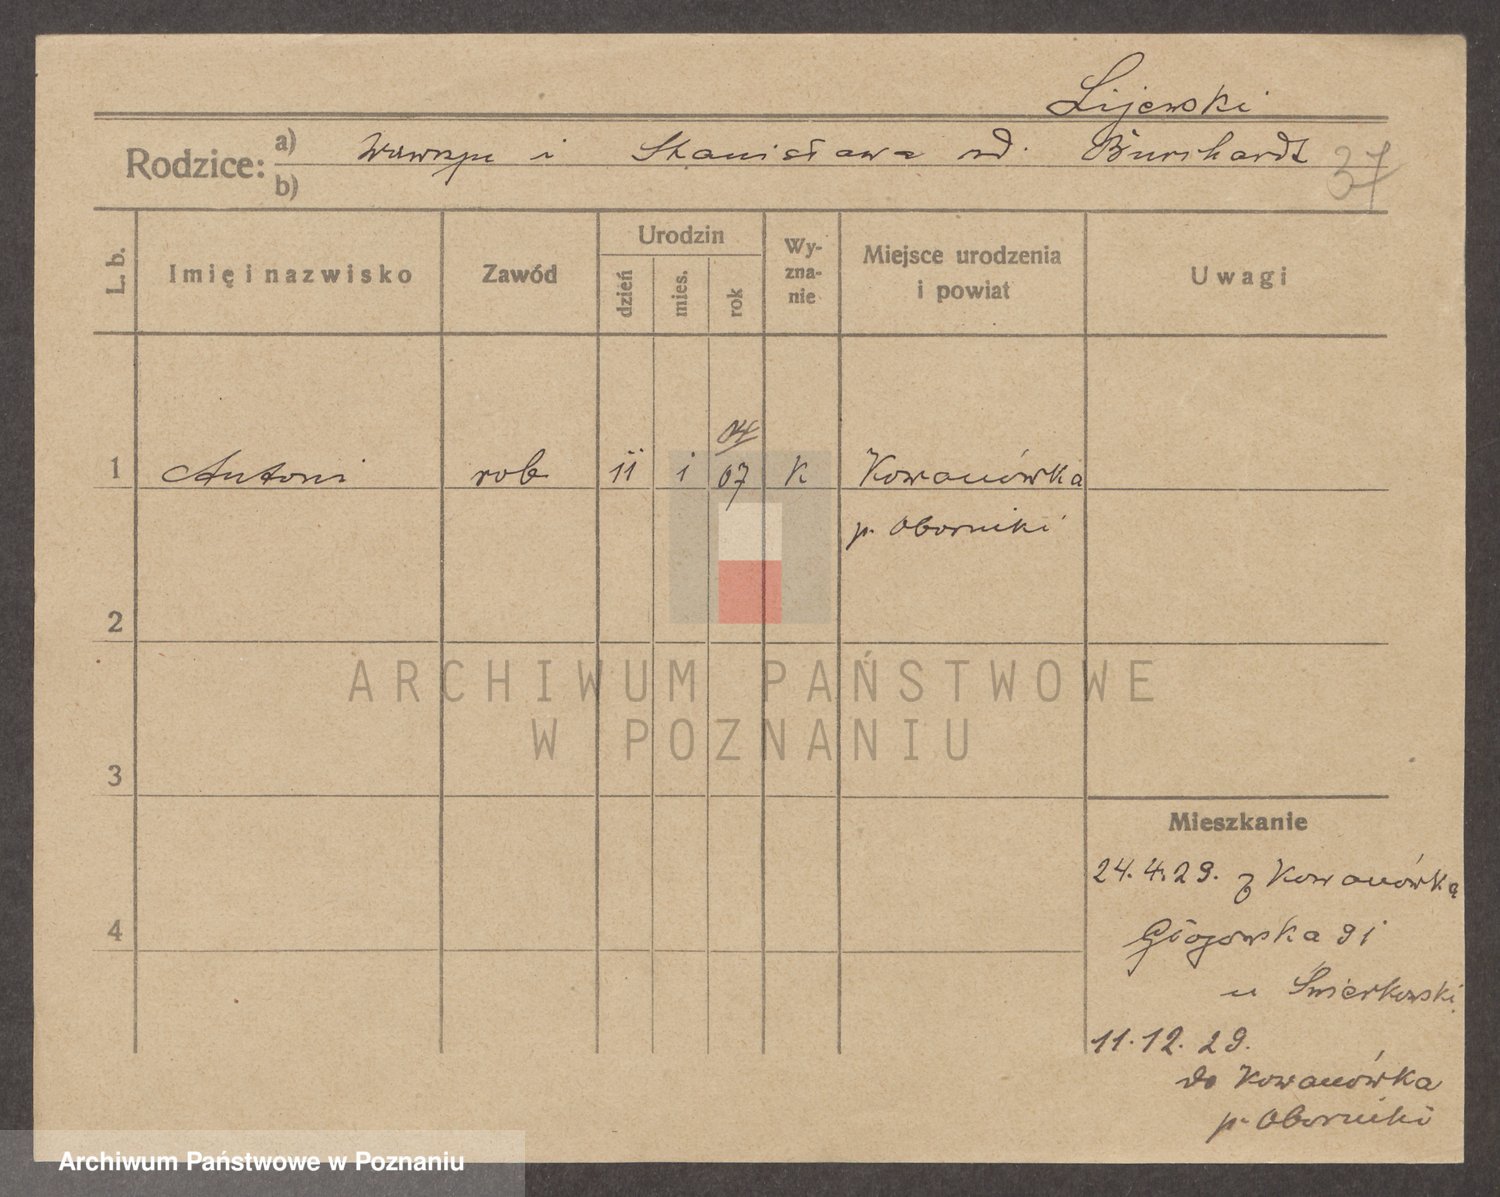 Lijewski
Rodzice: a) Wawrzyn i Stanisława rd. Burchardt 37
b)
L. b. Imię i nazwisko Zawód Urodzin dzień mies. rok Wy-zna-nie Miejsce urodzenia i powiat Uwagi
04
1 Antoni rob 11 1 07 k Kowanówka
p. Oborniki
2
ARCHIWUM PAŃSTWOWE
W POZNANIU
3
Mieszkanie
24.4.29. z Kowanówka
4 Głogowska 91
u Świerkowski
11.12.29.
do Kowanówka
p. Oborniki
Archiwum Państwowe w Poznaniu